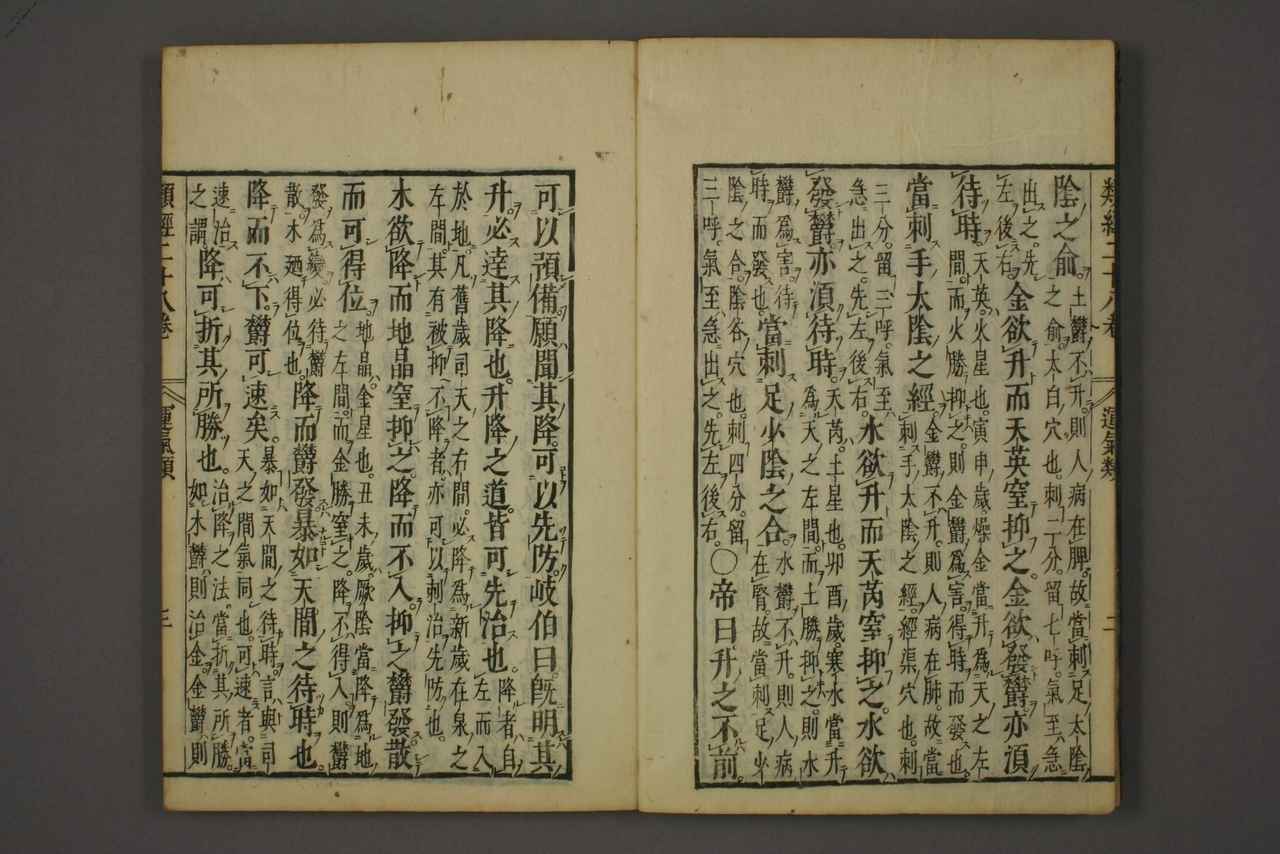 類經二十八卷 運氣類 二
陰之俞。土鬱不升。則人病在脾。故當刺足太陰之俞。太白穴也。刺二分。留七呼。氣至急
出之。先左後右。金欲升而天英窒抑之。金欲發鬱亦須
待時。天英。火星也。寅申歲。燥金當升為天之左間。而火勝抑之。則金鬱為害。得時而發也。
當刺手太陰之經。金鬱不升。則人病在肺。故當刺手太陰之經。經渠穴也。刺
三分。留三呼。氣至急出之。先左後右。水欲升而天芮窒抑之。水欲
發鬱亦須待時。天芮。土星也。卯酉歲。寒水當升為天之左間。而土勝抑之。則水
鬱為害。待時而發也。當刺足少陰之合。水鬱不升。則人病在腎。故當刺足少
陰之合。陰谷穴也。刺四分。留三呼。氣至急出之。先左後右。○帝曰。升之不前。
可以預備。願聞其降。可以先防。岐伯曰。既明其
升。必達其降也。升降之道。皆可先治也。降者。自左而入
於地。凡舊歲司天之右間。必降為新歲在泉之左間。其有被抑不降者。亦可以刺治先防也。
木欲降而地晶窒抑之。降而不入。抑之鬱發。散
而可得位。地晶。金星也。丑未歲。厥陰當降為地之左間。而金勝窒之。降不得入。則鬱
發為變。必待鬱散。木廼得位也。降而鬱發。暴如天間之待時也。
降而不下。鬱可速矣。暴如天間之待時。言與司天之間氣同也。可速者。
速治之謂。降可折其所勝也。治降之法。當折其所勝。如木鬱則治金。金鬱則
類經二十八卷 運氣類 三